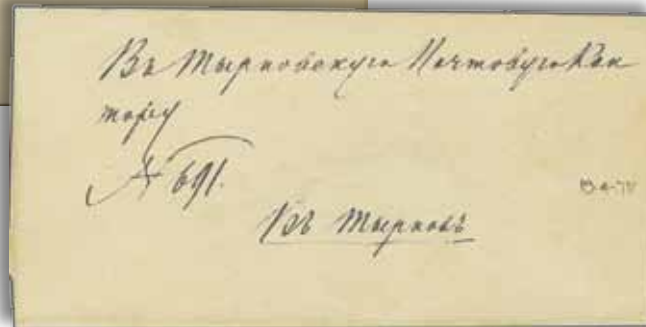 Въ Тырновскую Почтовую Кон
тору
№ 691.
Въ Тырновъ